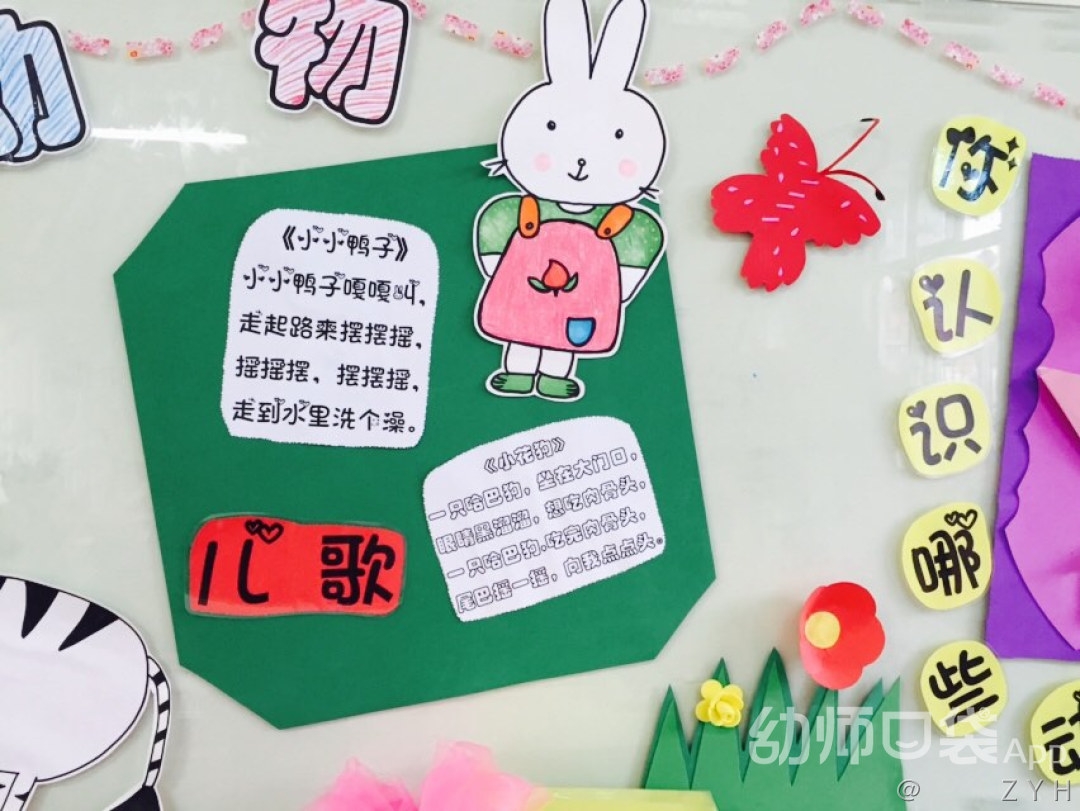 动物
《小小鸭子》
小小鸭子嘎嘎叫，
走起路来摆摆摇，
摇摇摆、摆摆摇，
走到水里洗个澡。
《小花狗》
一只哈巴狗，坐在大门口，
眼睛黑溜溜，想吃肉骨头，
一只哈巴狗，吃完肉骨头，
尾巴摇一摇，向我点点头。
儿歌
你
认
识
哪
些
动
幼师口袋App
@ ZYH